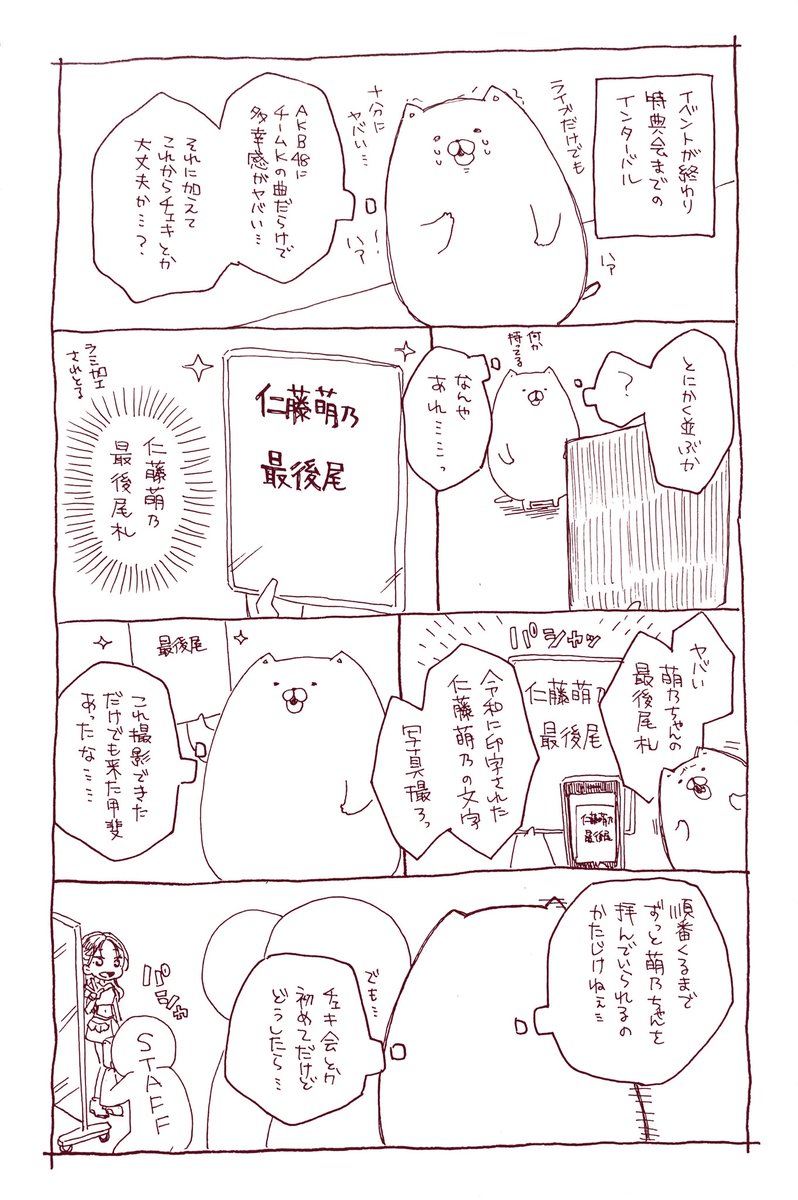 イベントが終わり
特典会までの
インターバル
ライブだけでも
十分に
ヤバい…
ハァ
ハァ
AKB48に
チームKの曲だらけで
多幸感がヤバい…
それに加えて
これからチェキとか
大丈夫か…?
とにかく並ぶか
?
何か
持ってる
なんや
あれ……っ
仁藤萌乃
最後尾
仁藤萌乃
最後尾札
ラミ加工
されとる
ヤバい
萌乃ちゃんの
最後尾札
パシャッ
仁藤萌乃
最後尾
仁藤萌乃
最後尾
令和に印字された
仁藤萌乃の文字
写真撮ろっ
最後尾
これ撮影できた
だけでも来た甲斐
あったな……
順番くるまで
ずっと萌乃ちゃんを
拝んでいられるの
かたじけねぇ…
でも…
チェキ会とか
初めてだけど
どうしたら…
パシャ
STAFF